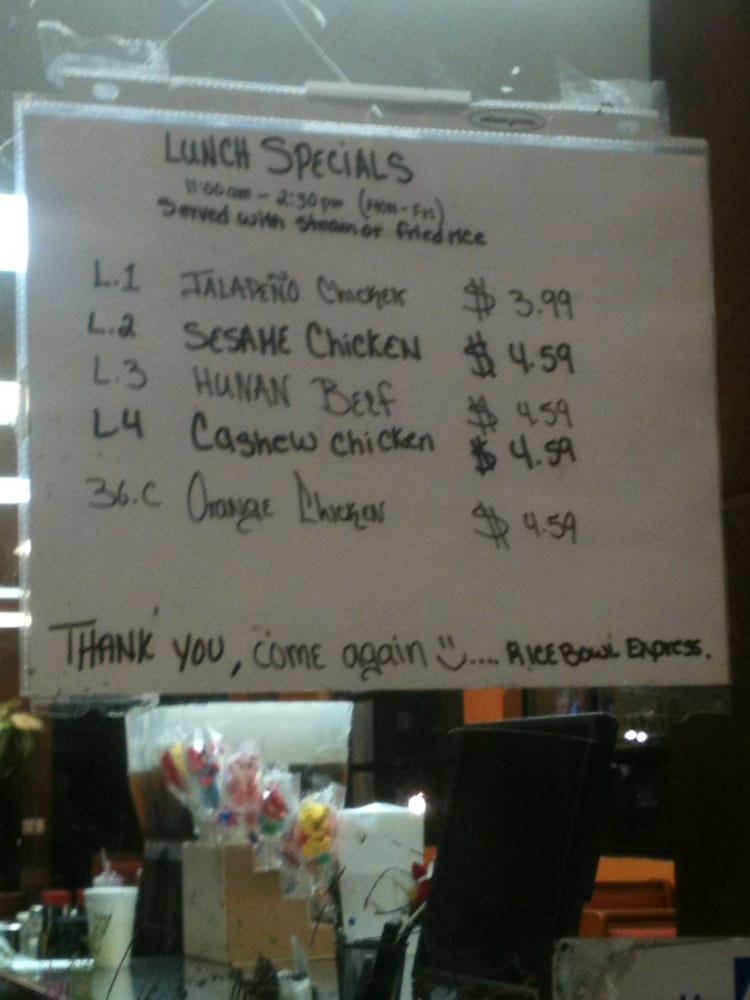 LUNCH SPECIALS
11:00am - 2:30pm (Mon-Fri)
Served with steam or fried rice
L.1 JALAPEÑO Chicken $ 3.99
L.2 SESAME Chicken $ 4.59
L.3 HUNAN Beef $ 4.59
L4 Cashew chicken $ 4.59
36.C Orange Chicken $ 4.59
THANK YOU, come again :).... RICE BOWL Express.